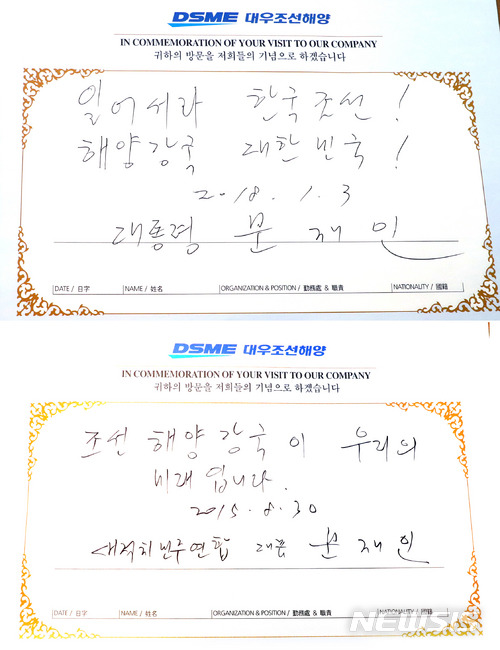 DSME 대우조선해양
IN COMMEMORATION OF YOUR VISIT TO OUR COMPANY
귀하의 방문을 저희들의 기념으로 하겠습니다
일어서라 한국조선!
해양강국 대한민국!
2018. 1. 3
대통령 문재인
DATE / 日字 NAME / 姓名 ORGANIZATION & POSITION / 勤務處 & 職責 NATIONALITY / 國籍
DSME 대우조선해양
IN COMMEMORATION OF YOUR VISIT TO OUR COMPANY
귀하의 방문을 저희들의 기념으로 하겠습니다
조선 해양강국이 우리의
미래입니다.
2015. 8. 30
새정치민주연합 대표 문재인
DATE / 日字 NAME / 姓名 ORGANIZATION & POSITION / 勤務處 & 職責 NATIONALITY / 國籍
NEWSIS